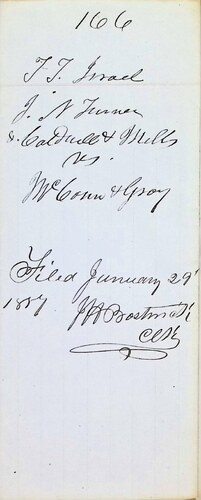 166
T. T. Israel
J. N. Turner
& Caldwell & Mills
vs.
McConn & Gray
Filed January 29
1857 Bostwick
Clk